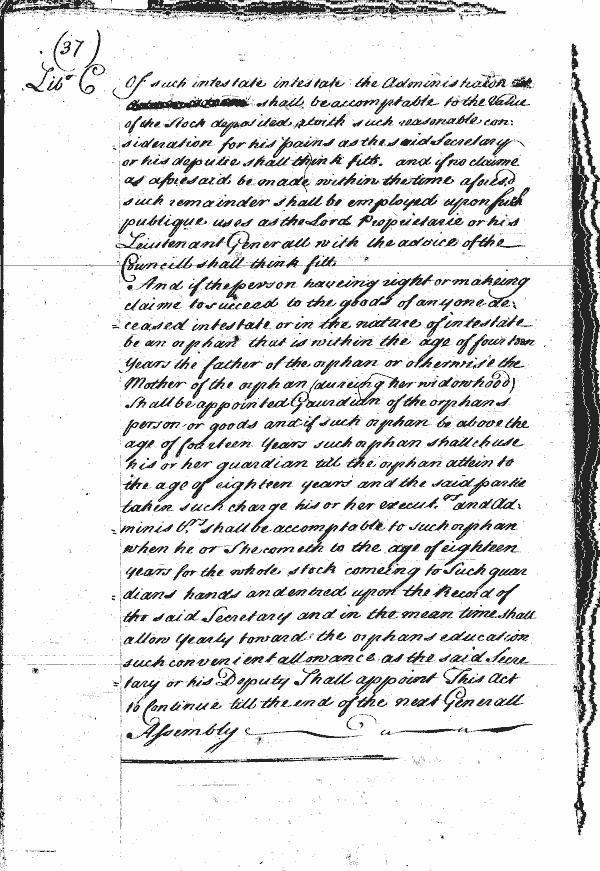 (37)
Libr C
Of such intestate intestate the Administrator
shall be accomptable to the Value
of the Stock deposited with such reasonable con:
sideration for his pains as the said Secretary
or his deputie shall think fitt. and if no claime
as aforesaid be made within the time aforesd
such remainder shall be employed upon such
publique uses as the Lord Proprietarie or his
Lieutenant Generall with the advice of the
Councill shall think fitt.
And if the person haveing right or makeing
claime to succeed to the goods of any one de:
ceased intestate or in the nature of intestate
be an orphan that is within the age of fourteen
Years the father of the orphan or otherwise the
Mother of the orphan (dureing her widowhood)
Shall be appointed Gaurdian of the orphans
person or goods and if such orphan be above the
age of fourteen Years such orphan shall chuse
his or her guardian till the orphan attein to
the age of eighteen years and the said partie
taken such charge his or her execut.ors and Ad:
minis trs shall be accomptable to such orphan
when he or She cometh to the age of eighteen
years for the whole stock comeing to Such guar
dians hands and entred upon the Record of
the said Secretary and in the mean time shall
allow Yearly toward the orphans education
such convenient allowance as the said Secre
tary or his Deputy Shall appoint This Act
to Continue till the end of the next Generall
Assembly